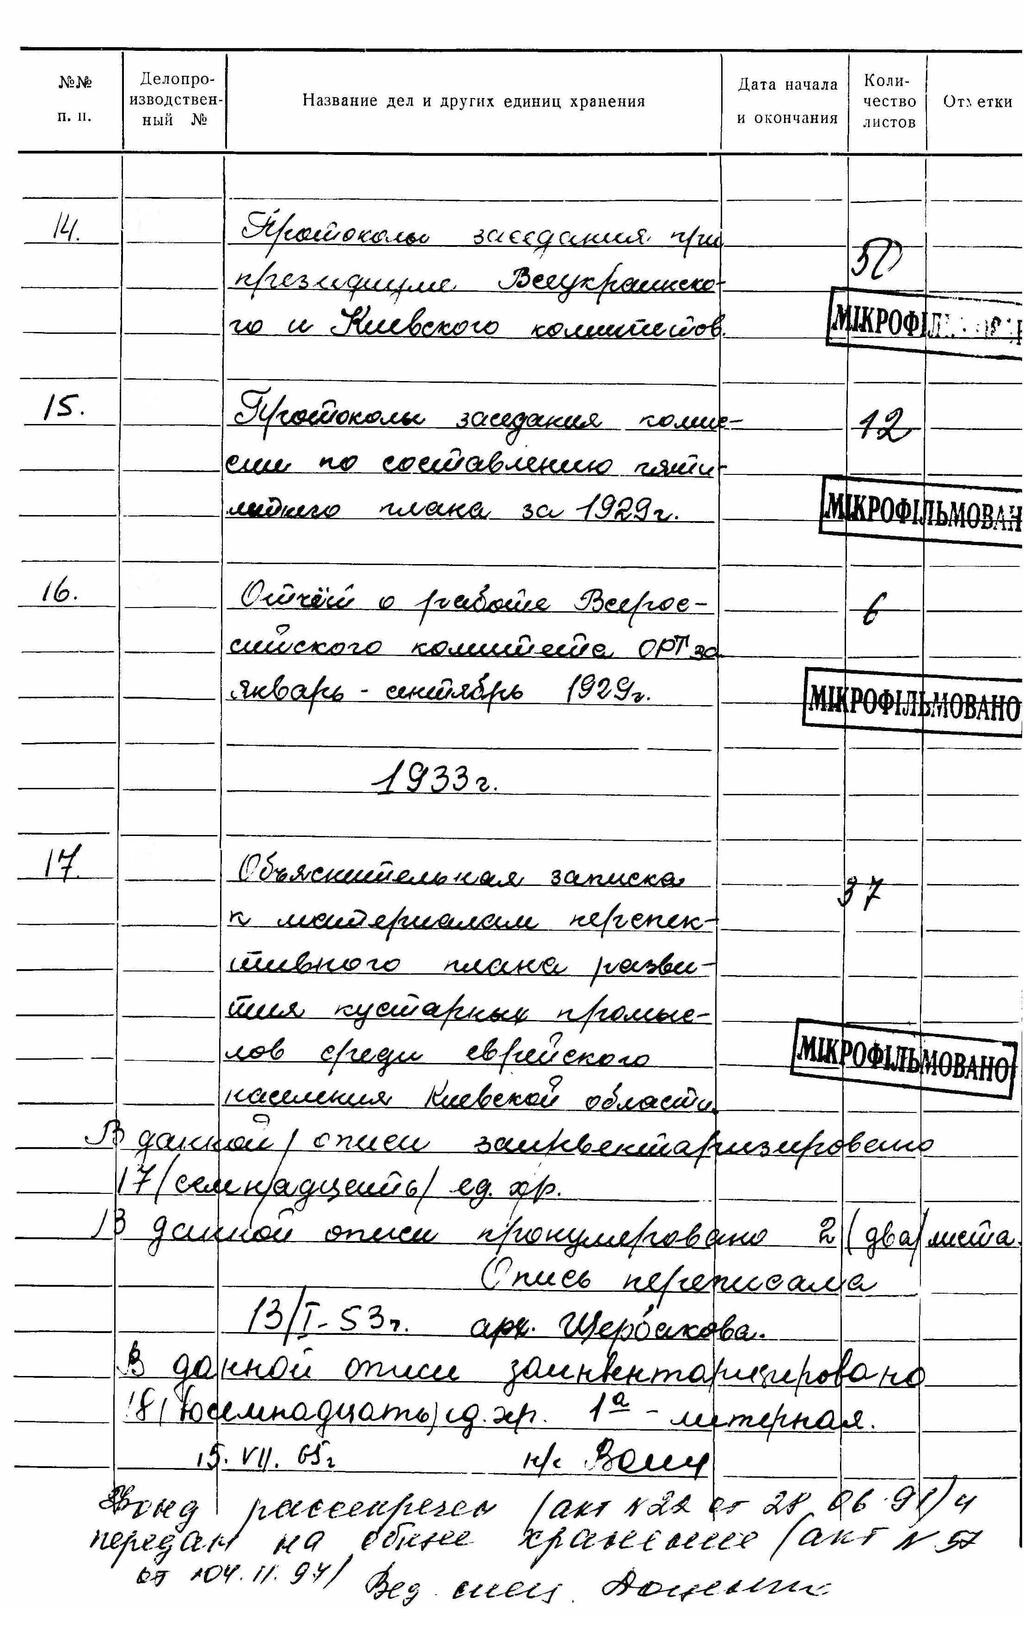 №№ п. п.
Делопро-
изводствен-
ный №
Название дел и других единиц хранения
Дата начала
и окончания
Коли-
чество
листов
Отметки
14.
Протоколы заседания при
президиуме Всеукраинско-
го и Киевского комитетов.
50
МІКРОФІЛЬМОВАН
15.
Протоколы заседания комис-
сии по составлению пяти-
летнего плана за 1929 г.
12
МІКРОФІЛЬМОВАН
16.
Отчёт о работе Всерос-
сийского комитета ОРТ за
январь - сентябрь 1929 г.
6
МІКРОФІЛЬМОВАНО
1933 г.
17.
Объяснительная записка
к материалам перспек-
тивного плана разви-
тия кустарных промыс-
лов среди еврейского
населения Киевской области.
37
МІКРОФІЛЬМОВАНО
В данной описи заинвентаризировано
17 (семнадцать) ед. хр.
В данной описи пронумеровано 2 (два) листа.
Опись переписала
13/I-53 г. арх. Щербакова.
В данной описи заинвентаризировано
18 (восемнадцать) ед. хр. 1а - литерная.
15. VII. 65 г
Фонд рассекречен (акт №22 от 28 06 91) и
передан на общее хранение (акт № 57
от 04. 11. 97) Вед. спец.